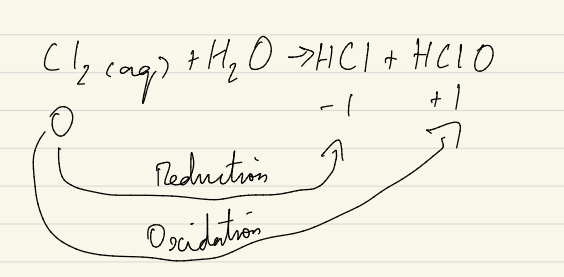 Cl₂ (aq) + H₂O → HCl + HClO
0 -1 +1
Reduction
Oxidation